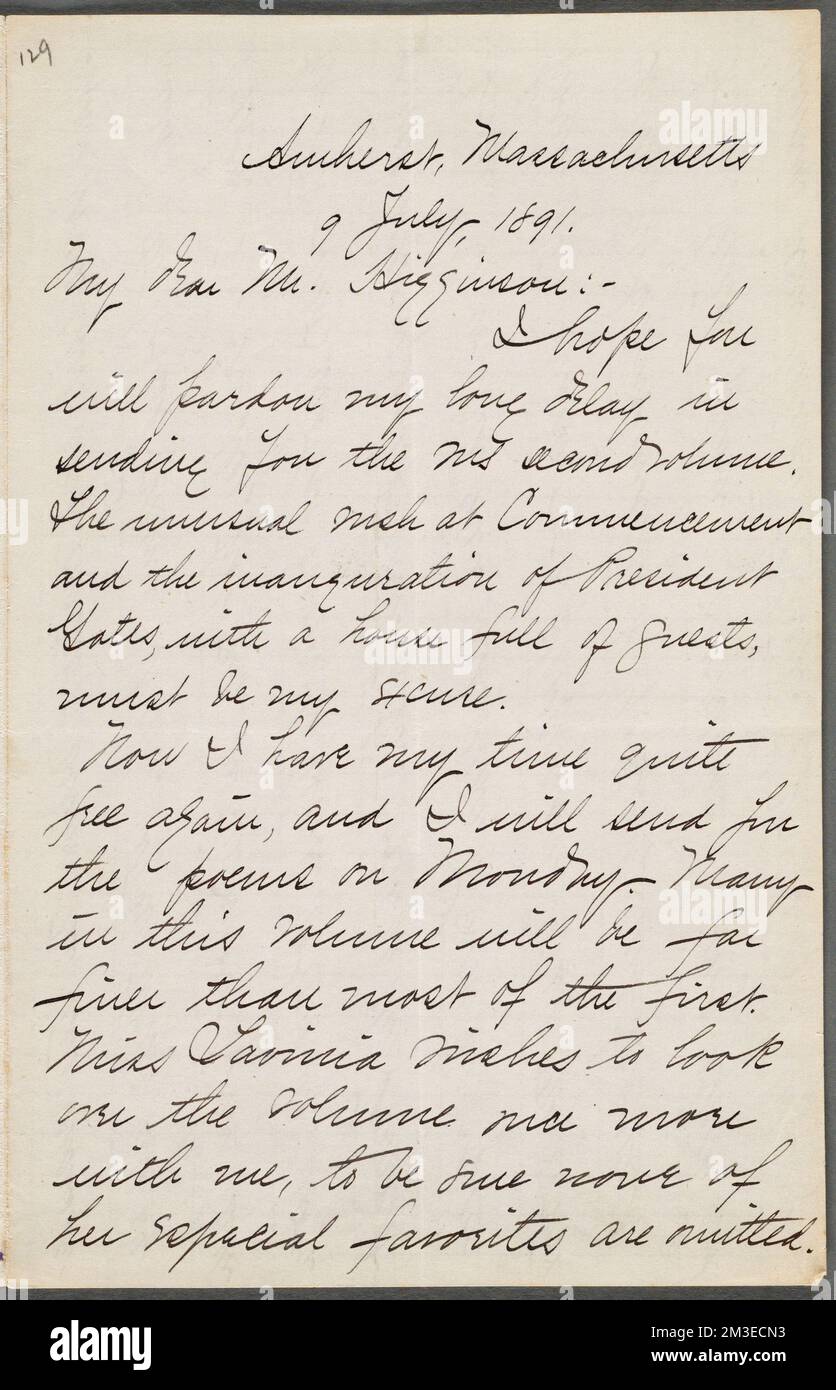 129
Amherst, Massachusetts
9 July, 1891.
My dear Mr. Higginson:-
I hope you
will pardon my long delay in
sending you the ms second volume.
The unusual rush at Commencement
and the inauguration of President
Gates, with a house full of guests,
must be my excuse.
Now I have my time quite
free again, and I will send you
the poems on Monday. Many
in this volume will be far
finer than most of the first.
Miss Lavinia wishes to look
over the volume once more
with me, to be sure none of
her especial favorites are omitted.
alamy
Image ID: 2M3ECN3
www.alamy.com